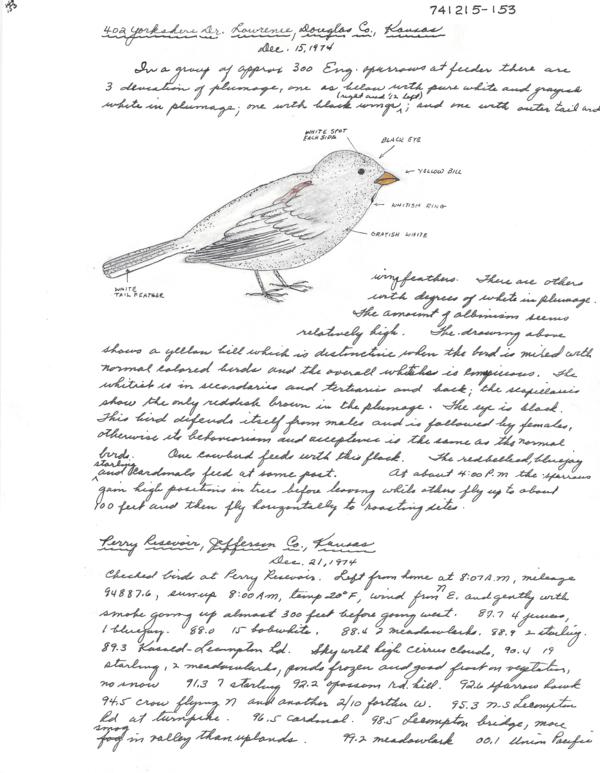 741215-153
33
402 Yorkshire Dr. Lawrence, Douglas Co., Kansas
Dec. 15, 1974
In a group of approx 300 Eng. sparrows at feeder there are
3 deviation of plumage, one as below with pure white and grayish
(right and 1/2 left)
white in plumage; one with black wings; and one with outer tail and
WHITE SPOT
EACH SIDE
BLACK EYE
YELLOW BILL
WHITISH RING
GRAYISH WHITE
WHITE
TAIL FEATHER
wing feathers. There are others
with degrees of white in plumage.
The amount of albinism seems
relatively high. The drawing above
shows a yellow bill which is distinctive when the bird is mixed with
normal colored birds and the overall whiteness is conspicuous. The
whitest is in secondaries and tertiaries and back; the scapillaries
show the only reddish brown in the plumage. The eye is black.
This bird difends itself from males and is followed by females,
otherwise its behaviorism and acceptance is the same as the normal
birds. One cowbird feeds with this flock. The redbellied, bluejay
starling
and cardinals feed at same post. At about 4:00 P.M the sparrows
gain high positions in trees before leaving while others fly up to about
100 feet and then fly horizontally to roosting sites.
Perry Resevoir, Jefferson Co., Kansas
Dec. 21, 1974
Checked birds at Perry Resevoir. Left from home at 8:07 A.M, mileage
94887.6, sun up 8:00 AM, temp 20° F, wind from N E. and gently with
smoke going up almost 300 feet before going west. 87.7 4 juncos,
1 bluejay. 88.0 15 bobwhite. 88.4 2 meadowlarks. 88.9 2 starling.
89.3 Lecompton Rd. Sky with high cirrus clouds, 90.4 19
starling, 2 meadowlarks, ponds frozen and good frost on vegetation,
no snow 91.3 7 starling 92.2 opossum rd. kill. 92.6 sparrow hawk
94.5 crow flying N and another 2/10 farther W. 95.3 N-S Lecompton
Rd at turnpike. 96.5 cardinal. 98.5 Lecompton bridge, more
smog
fog in valley than uplands. 99.2 meadowlark 00.1 Union Pacific